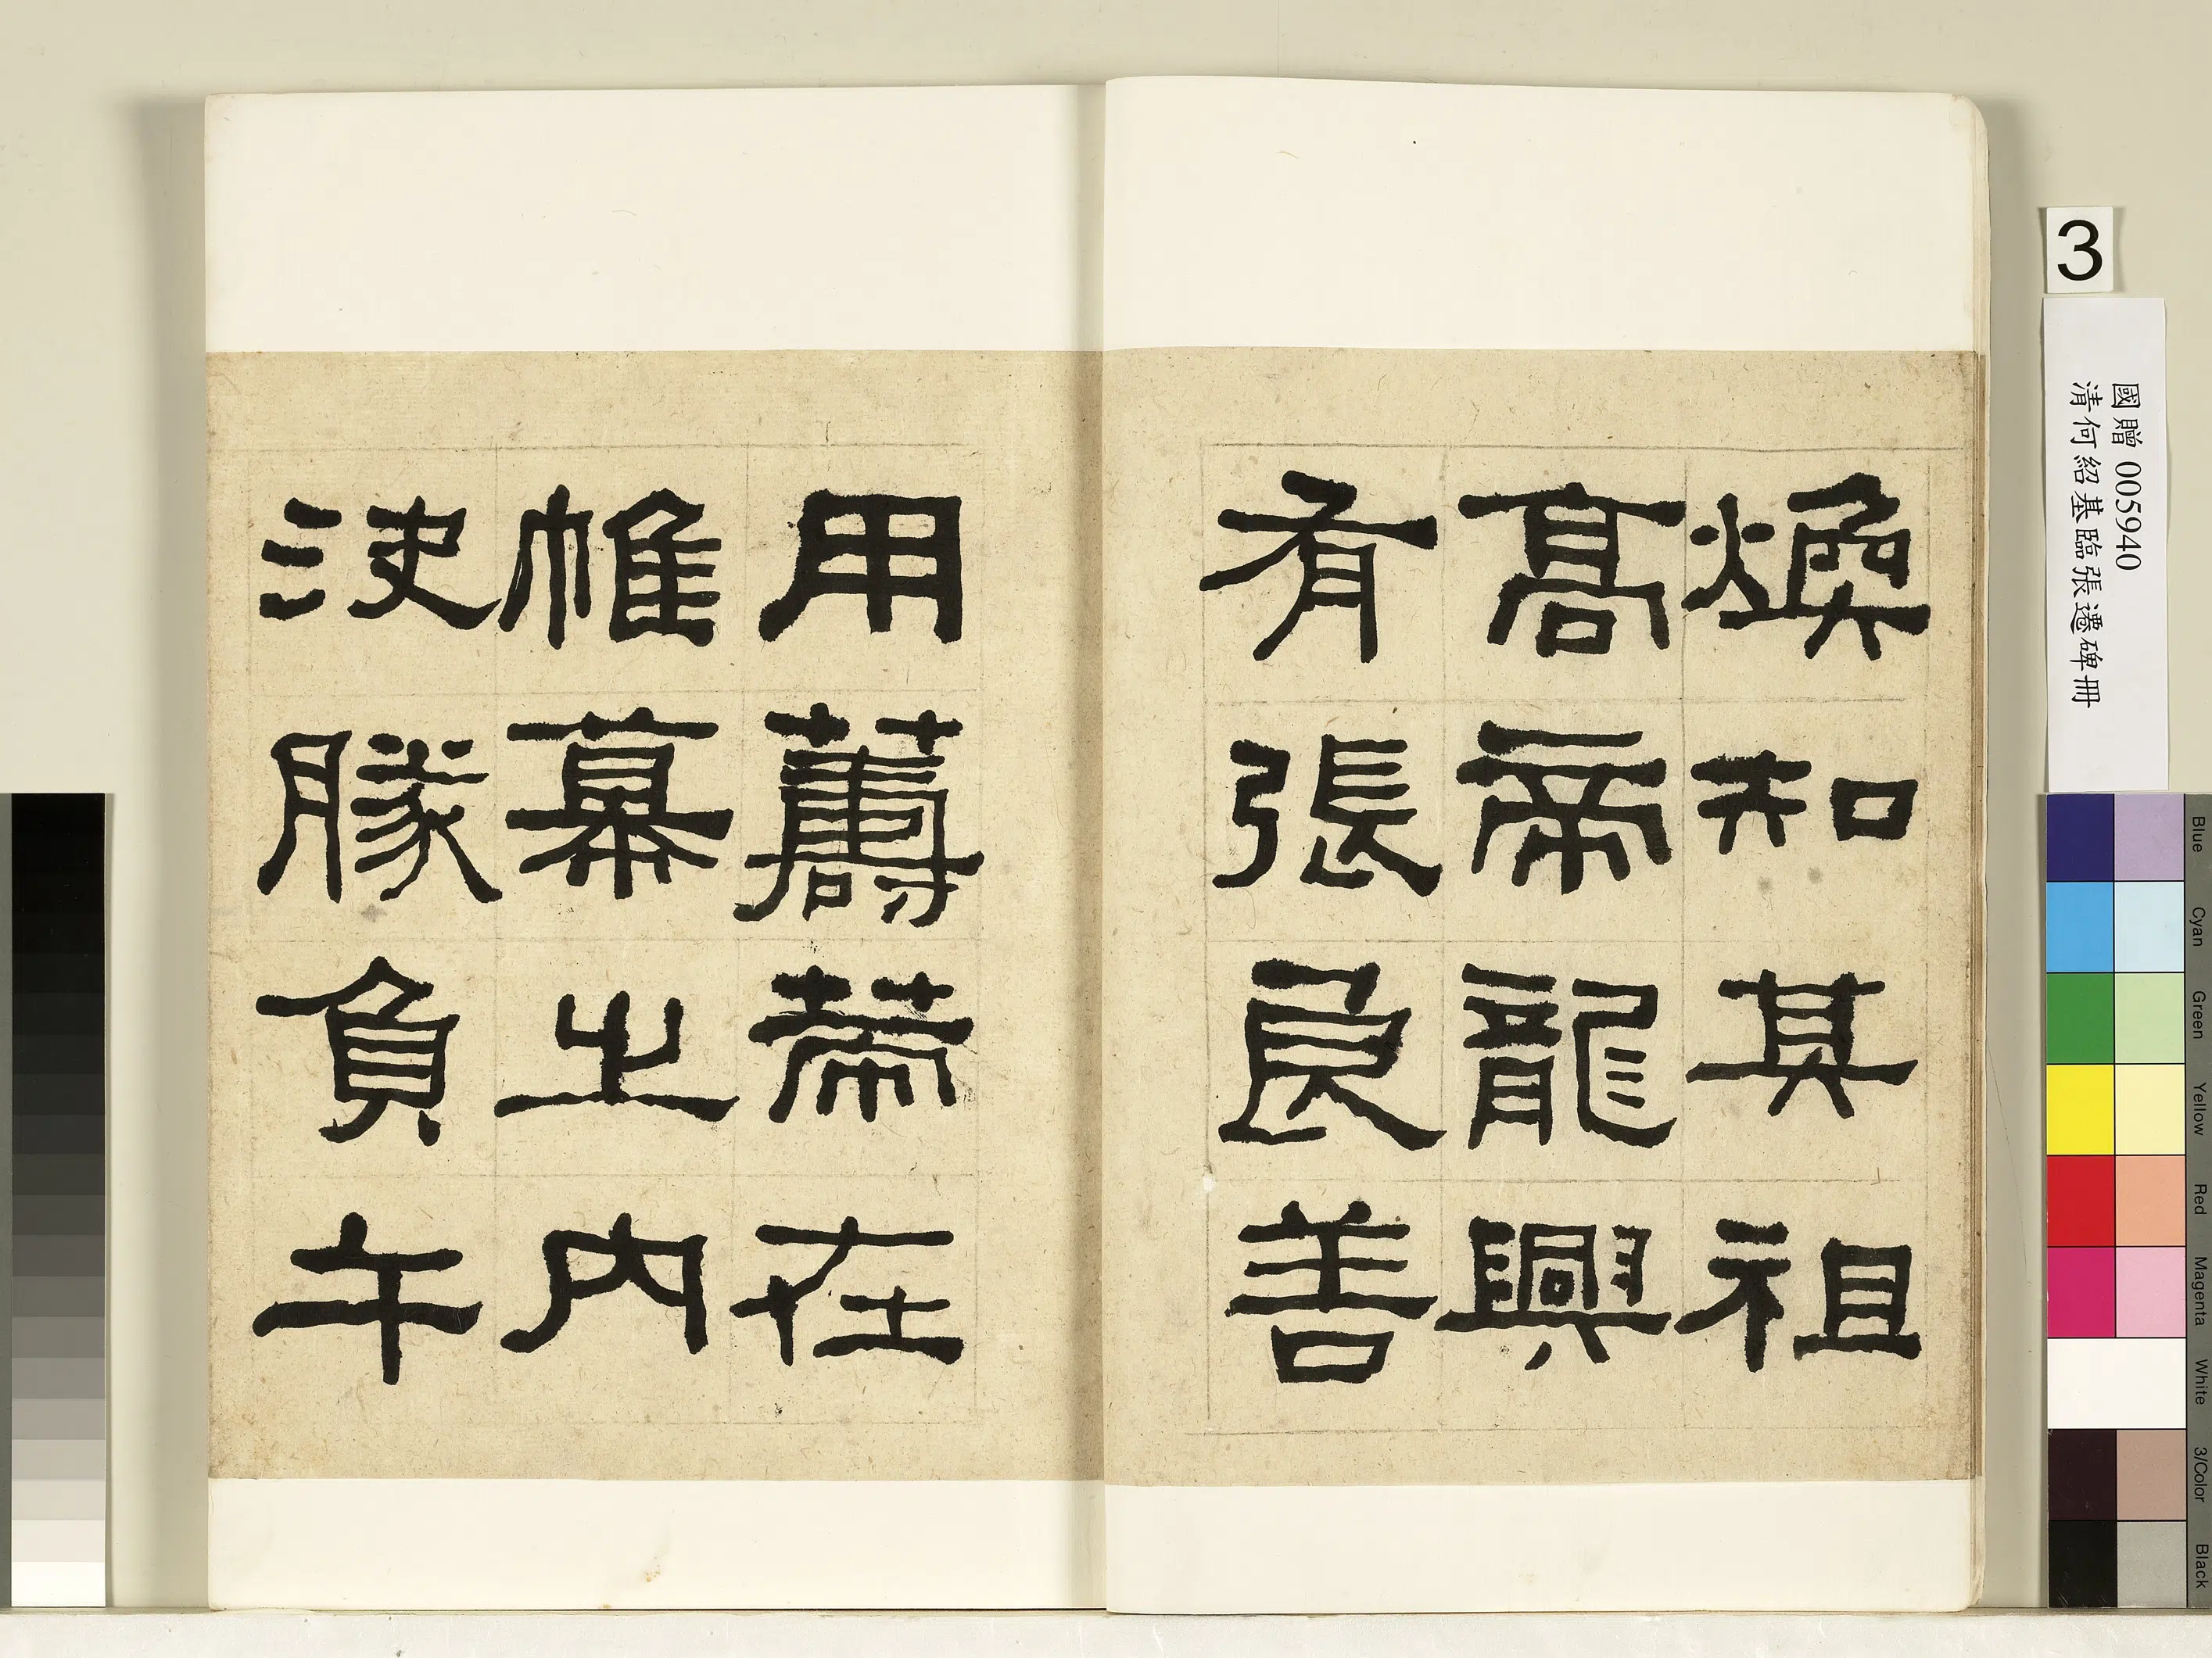 煥知其祖
高帝龍興
有張良善
用籌策在
帷幕之内
決勝負午
3
國贈 005940
清何紹基臨張遷碑冊
Blue
Cyan
Green
Yellow
Red
Magenta
White
3/Color
Black